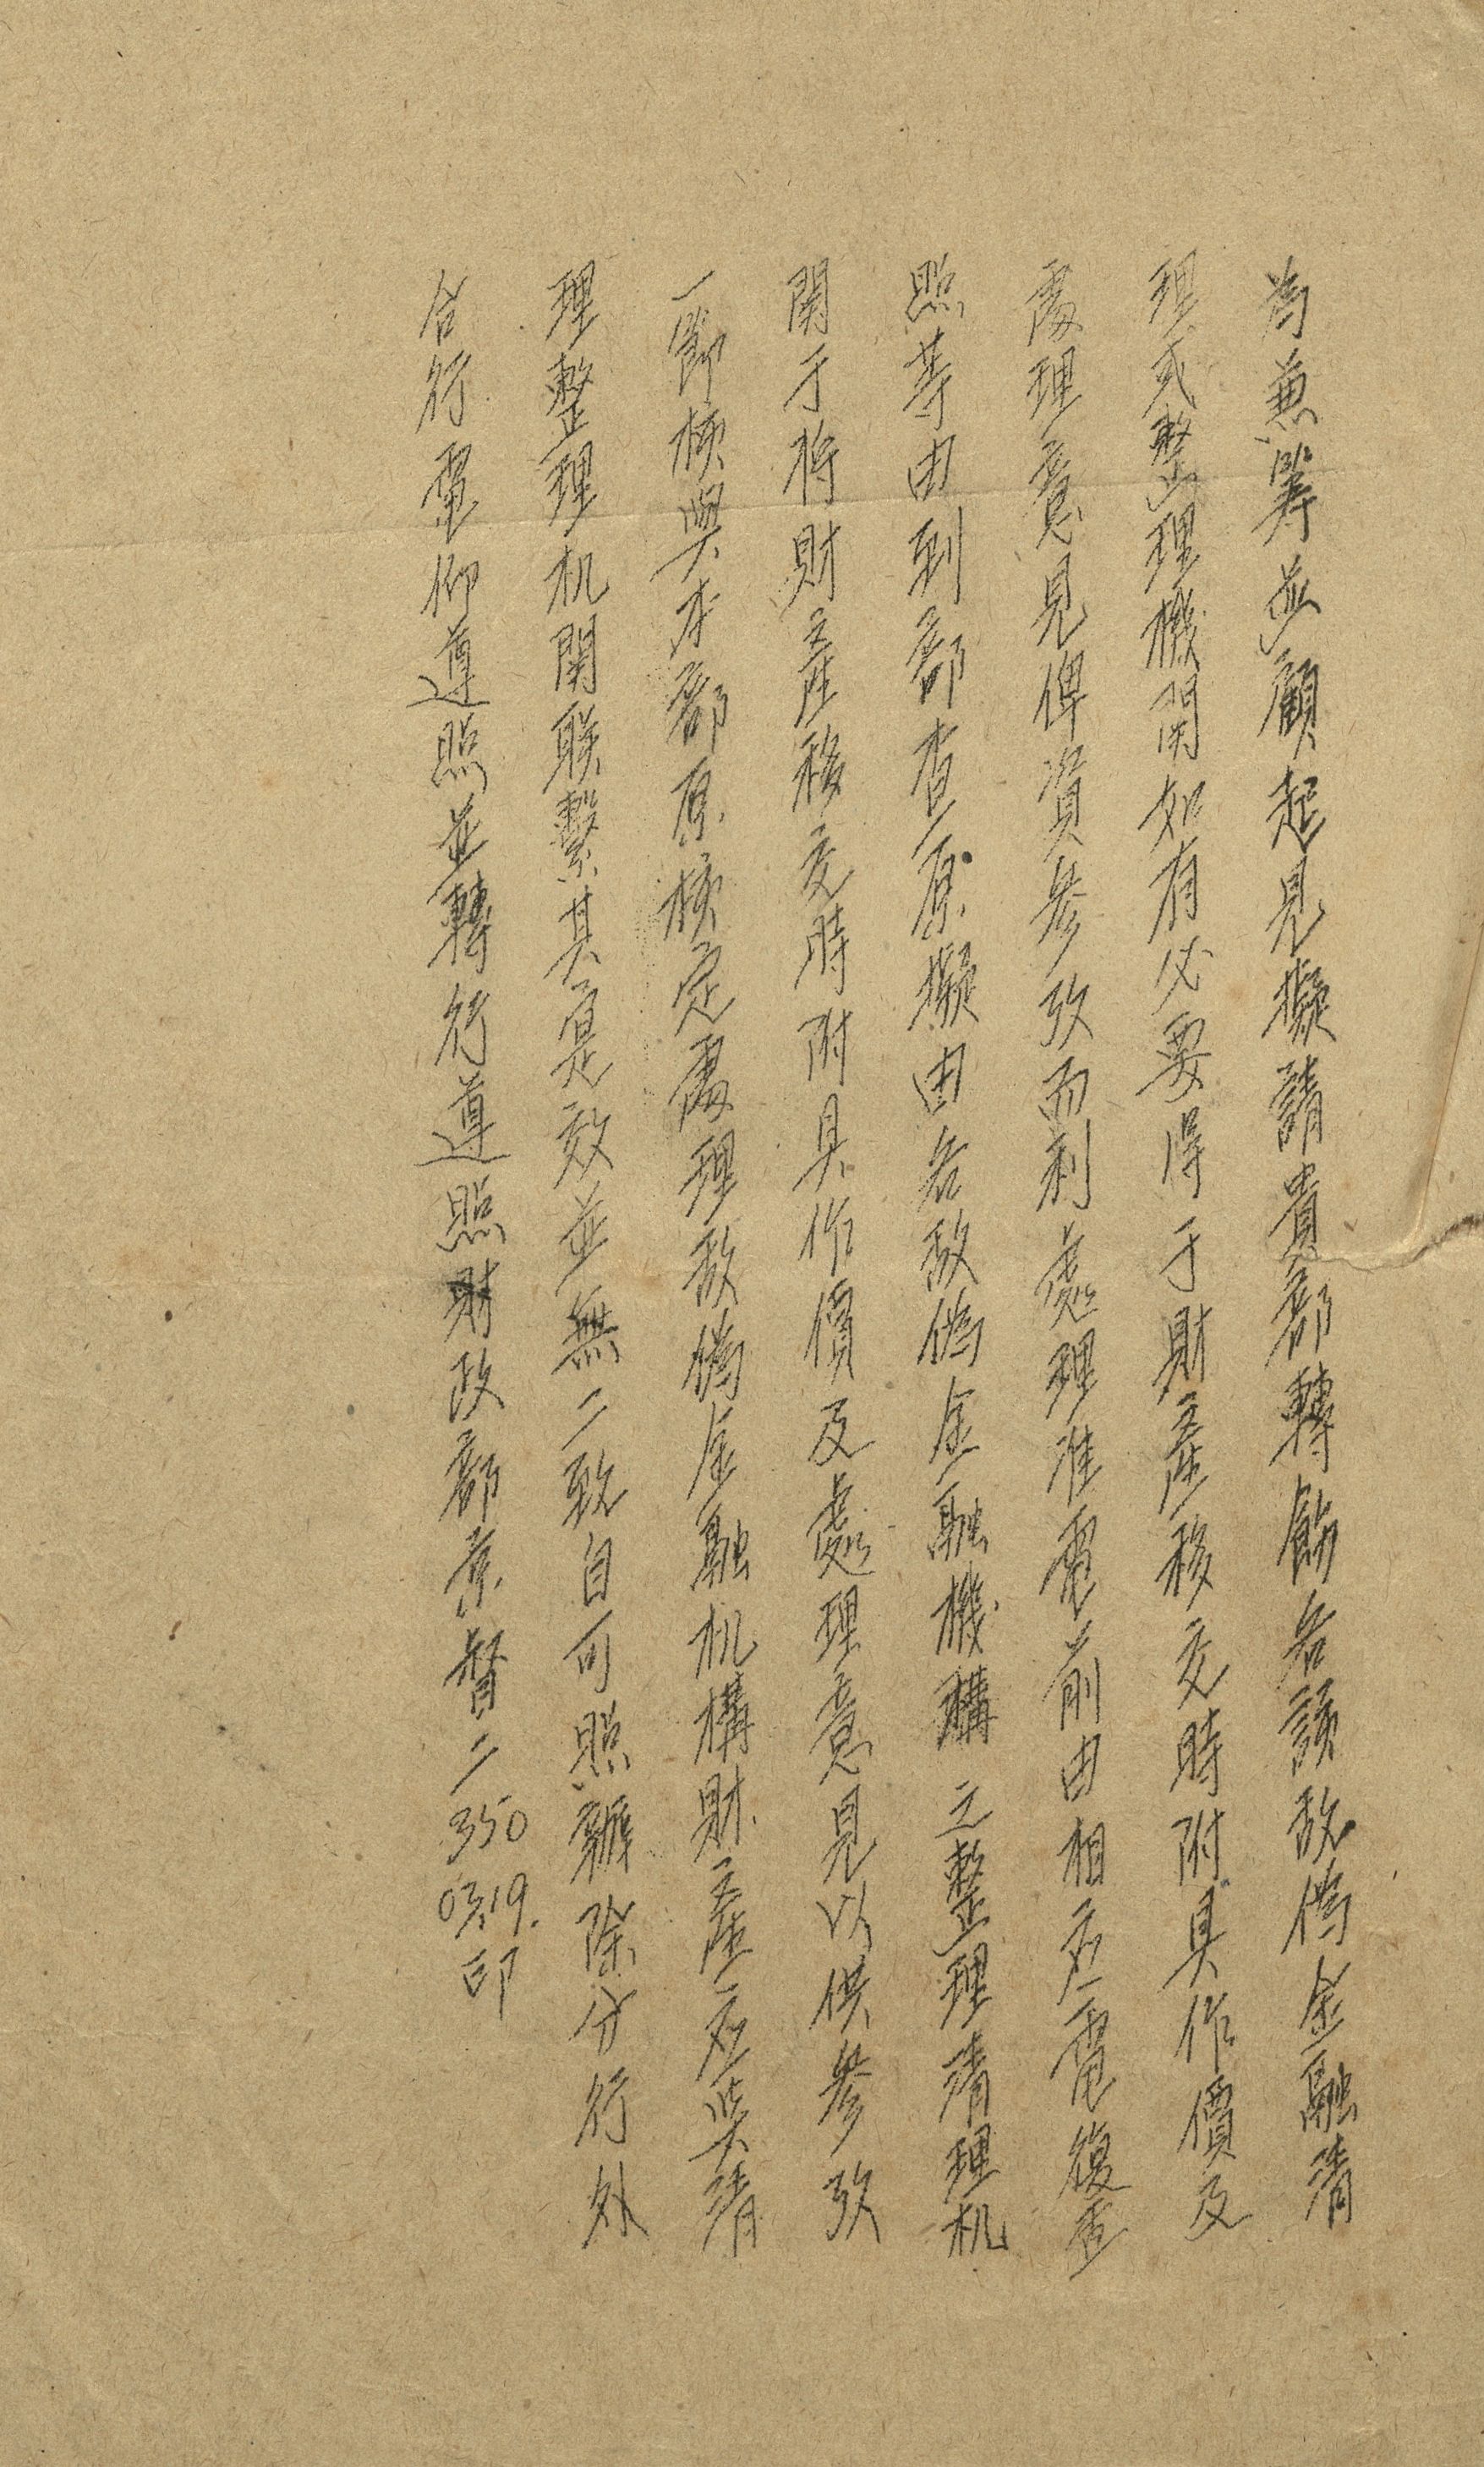 為兼籌並顧起見擬請貴部轉飭各該敌偽金融清
理或整理機関如有必要得于財產移交時附具作價及
處理意見俾資參攷而利處理准電前由相应電復查
照等由到部查原擬由各敌偽金融機構之整理清理机
関于将財產移交時附具作價及處理意見以供參攷
一節核與本部原核定處理敌偽金融机構財產应與清
理整理机関联繫其寔效並無二致自可照辦除分行外
合行電仰遵照並轉行遵照財政部京督二350
03.19.印